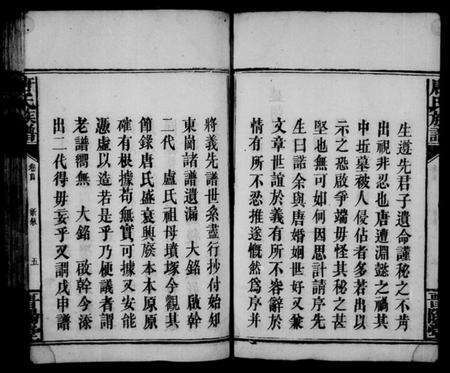 生道先君子遺命謹秘之不肯
出視非忍也唐遭淵懿之禍其
中坵墓被人侵佔者多若出以
示之恐啟爭端毋怪其秘之甚
堅也無可如何因思計請序先
生曰諾余與唐婚姻世好又兼
文章世誼於義有所不容辭於
情有所不忍推遂慨然為序并
將義先譜世系盡行抄付始知
東崗諸譜遺漏 大銘 啟幹
二代 盧氏祖母墳塚今觀其
節錄唐氏盛衰興廢本本原原
確有根據苟無實可據又安能
憑虛以造若是乎乃梗議者謂
老譜謂無 大銘 啟幹今添
出二代得毋妄乎又謂戊申譜
唐氏族譜
卷首
五